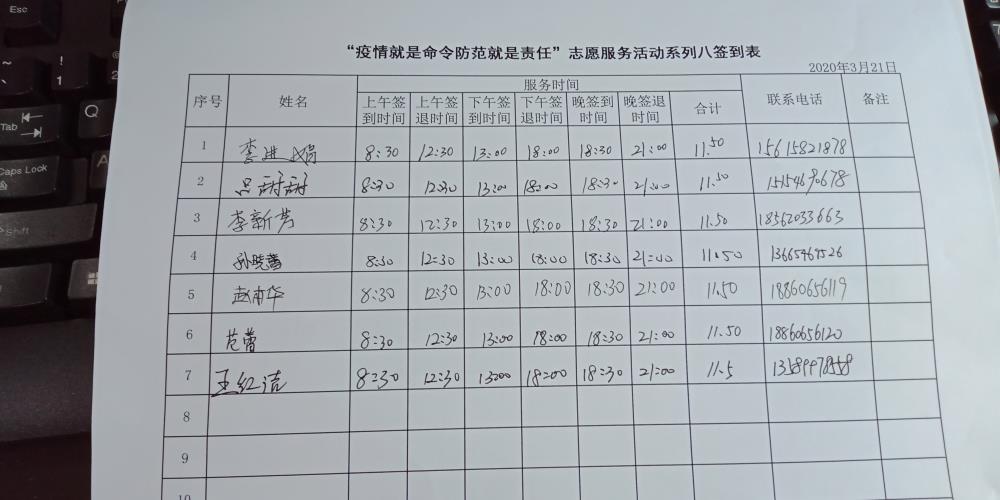 Esc
Tab
Q
A
Caps Lock
Shift
“疫情就是命令防范就是责任”志愿服务活动系列八签到表
2020年3月21日
序号 姓名 服务时间 联系电话 备注
上午签到时间 上午签退时间 下午签到时间 下午签退时间 晚签到时间 晚签退时间 合计
1 李进娟 8:30 12:30 13:00 18:00 18:30 21:00 11.50 15615821878
2 吕甜甜 8:30 12:30 13:00 18:00 18:30 21:00 11.50 15154690678
3 李新芳 8:30 12:30 13:00 18:00 18:30 21:00 11.50 18562033663
4 孙晓蕾 8:30 12:30 13:00 18:00 18:30 21:00 11.50 13665469526
5 赵南华 8:30 12:30 13:00 18:00 18:30 21:00 11.50 18860656119
6 范蕾 8:30 12:30 13:00 18:00 18:30 21:00 11.50 18860656120
7 王红洁 8:30 12:30 13:00 18:00 18:30 21:00 11.5
8
9
10